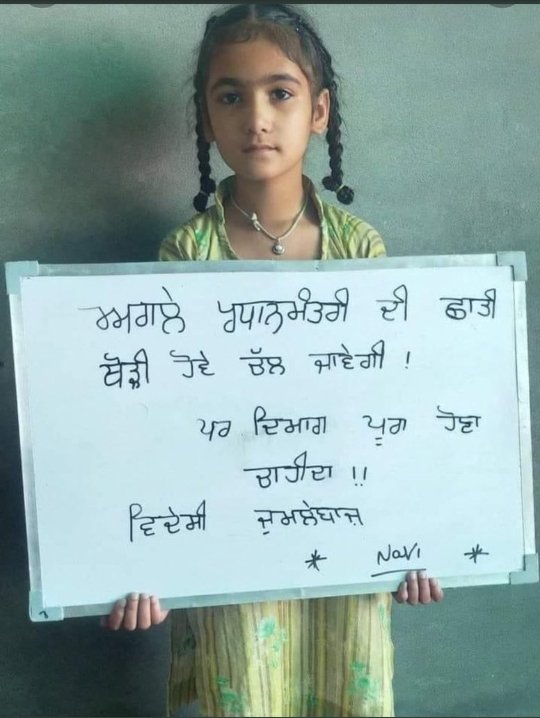 ਅਗਲੇ ਪ੍ਰਧਾਨਮੰਤਰੀ ਦੀ ਛਾਤੀ
ਥੋੜ੍ਹੀ ਹੋਵੇ ਚੱਲ ਜਾਵੇਗੀ !
ਪਰ ਦਿਮਾਗ ਪੂਰਾ ਹੋਣਾ
ਚਾਹੀਦਾ !!
ਵਿਦੇਸੀ ਜੁਮਲੇਬਾਜ਼
* Navi *